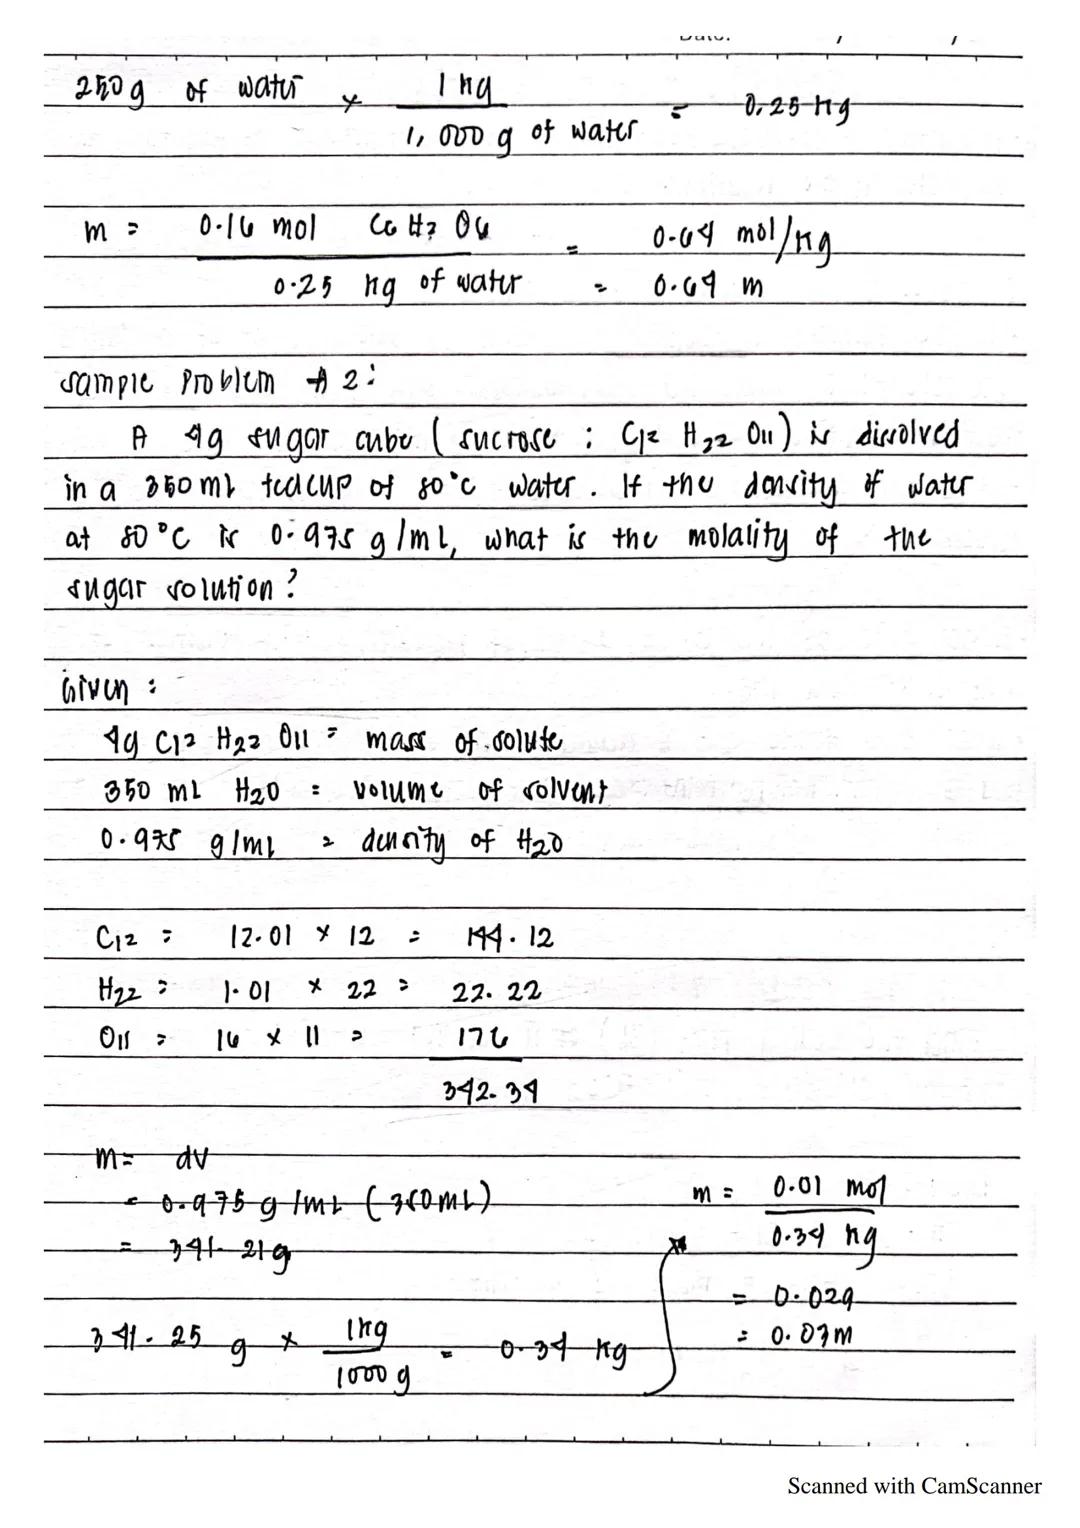 250 g of water × 1 kg / 1,000 g of water = 0.25 kg
m = 0.16 mol C6 H7 O6 / 0.25 kg of water = 0.64 mol/kg
= 0.64 m
Sample Problem # 2:
A 4g sugar cube ( sucrose : C12 H22 O11) is dissolved
in a 350 ml teacup of 80°C water. If the density of water
at 80°C is 0.975 g/mL, what is the molality of the
sugar solution?
Given :
4g C12 H22 O11 = mass of solute
350 mL H2O = volume of solvent
0.975 g/mL = density of H2O
C12 = 12.01 × 12 = 144.12
H22 = 1.01 × 22 = 22.22
O11 = 16 × 11 = 176
342.34
m = dV
= 0.975 g/mL (350mL)
= 341.21g
341.25 g × 1kg / 1000 g = 0.34 kg
m = 0.01 mol / 0.34 kg
= 0.029
= 0.03m
Scanned with CamScanner